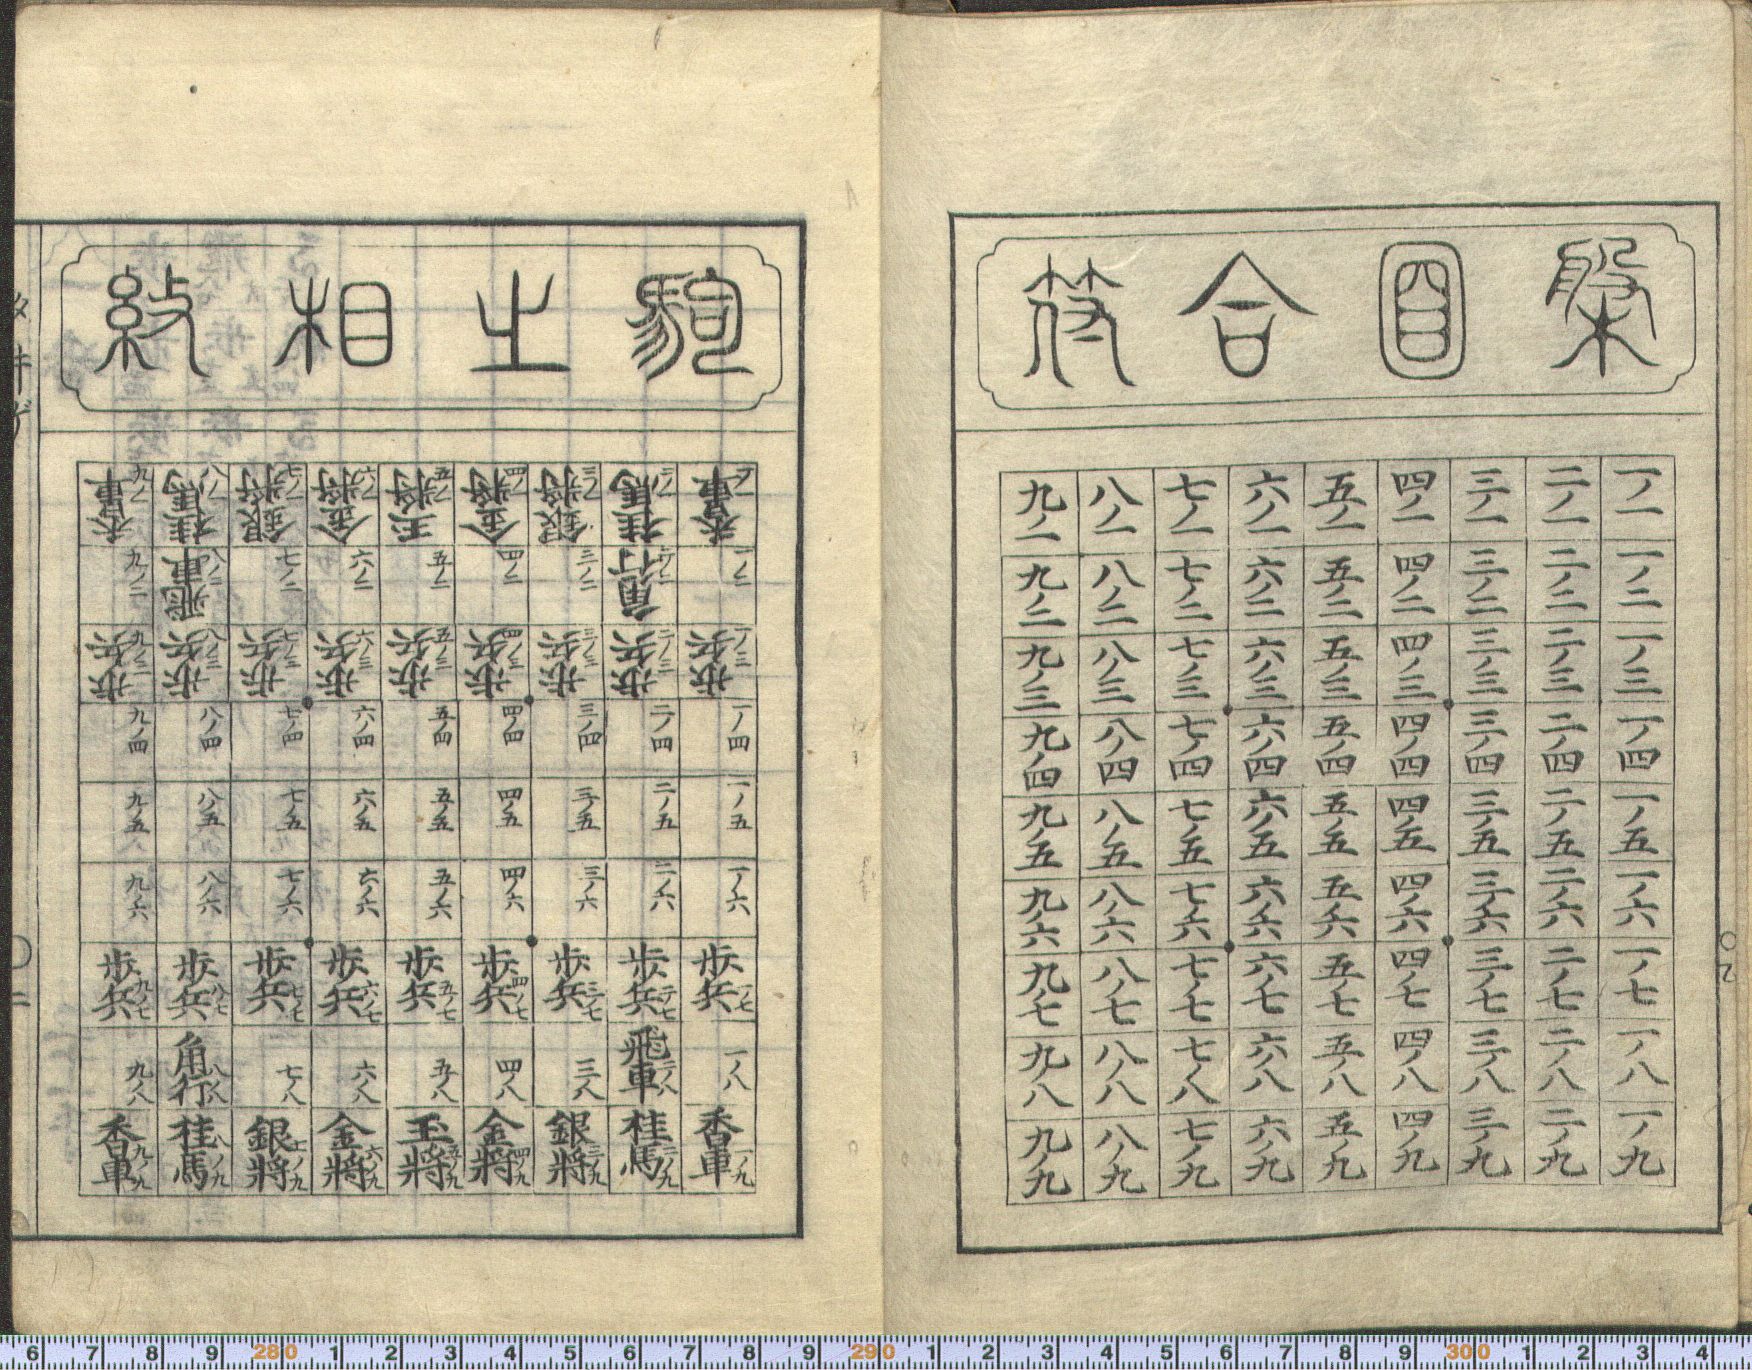 槃圖合符
一ノ一 一ノ二 一ノ三 一ノ四 一ノ五 一ノ六 一ノ七 一ノ八 一ノ九
二ノ一 二ノ二 二ノ三 二ノ四 二ノ五 二ノ六 二ノ七 二ノ八 二ノ九
三ノ一 三ノ二 三ノ三 三ノ四 三ノ五 三ノ六 三ノ七 三ノ八 三ノ九
四ノ一 四ノ二 四ノ三 四ノ四 四ノ五 四ノ六 四ノ七 四ノ八 四ノ九
五ノ一 五ノ二 五ノ三 五ノ四 五ノ五 五ノ六 五ノ七 五ノ八 五ノ九
六ノ一 六ノ二 六ノ三 六ノ四 六ノ五 六ノ六 六ノ七 六ノ八 六ノ九
七ノ一 七ノ二 七ノ三 七ノ四 七ノ五 七ノ六 七ノ七 七ノ八 七ノ九
八ノ一 八ノ二 八ノ三 八ノ四 八ノ五 八ノ六 八ノ七 八ノ八 八ノ九
九ノ一 九ノ二 九ノ三 九ノ四 九ノ五 九ノ六 九ノ七 九ノ八 九ノ九
駒之相
一ノ一 香車 一ノ二 一ノ三 歩兵 一ノ四 一ノ五 一ノ六 一ノ七 歩兵 一ノ八 一ノ九 香車
二ノ一 桂馬 二ノ二 角行 二ノ三 歩兵 二ノ四 二ノ五 二ノ六 二ノ七 歩兵 二ノ八 飛車 二ノ九 桂馬
三ノ一 銀将 三ノ二 三ノ三 歩兵 三ノ四 三ノ五 三ノ六 三ノ七 歩兵 三ノ八 三ノ九 銀将
四ノ一 金将 四ノ二 四ノ三 歩兵 四ノ四 四ノ五 四ノ六 四ノ七 歩兵 四ノ八 四ノ九 金将
五ノ一 玉将 五ノ二 五ノ三 歩兵 五ノ四 五ノ五 五ノ六 五ノ七 歩兵 五ノ八 五ノ九 玉将
六ノ一 金将 六ノ二 六ノ三 歩兵 六ノ四 六ノ五 六ノ六 六ノ七 歩兵 六ノ八 六ノ九 金将
七ノ一 銀将 七ノ二 七ノ三 歩兵 七ノ四 七ノ五 七ノ六 七ノ七 歩兵 七ノ八 七ノ九 銀将
八ノ一 桂馬 八ノ二 飛車 八ノ三 歩兵 八ノ四 八ノ五 八ノ六 八ノ七 歩兵 八ノ八 角行 八ノ九 桂馬
九ノ一 香車 九ノ二 九ノ三 歩兵 九ノ四 九ノ五 九ノ六 九ノ七 歩兵 九ノ八 九ノ九 香車
二
6 7 8 9 280 1 2 3 4 5 6 7 8 9 290 1 2 3 4 5 6 7 8 9 300 1 2 3 4